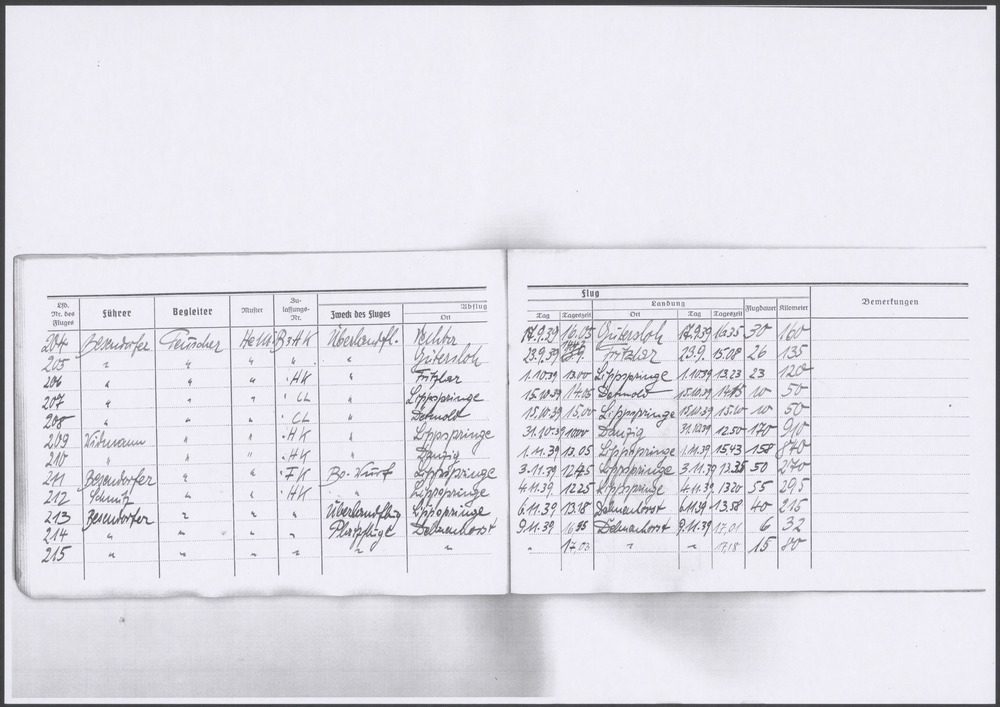 Lfd. Nr. des Fluges Führer Begleiter Muster Zulassungs-Nr. Zweck des Fluges Abflug Ort Tag Tageszeit Flug Landung Ort Tag Tageszeit Flugdauer Kilometer Bemerkungen
204 Besendorfer Teuscher He111 B3HK Überlandfl. Vechta 17.9.39 16.05 Gütersloh 17.9.39 16.35 30 160
205 " " " " " Gütersloh 23.9.39 Fritzlar 23.9. 15.08 26 135
206 " " " HK " Fritzlar 1.10.39 13.00 Lippspringe 1.10.39 13.23 23 120
207 " " " CL " Lippspringe 15.10.39 14.05 Detmold 15.10.39 14.15 10 50
208 " " " CL " Detmold 15.10.39 15.00 Lippspringe 15.10.39 15.10 10 50
209 Widmann " " HK " Lippspringe 31.10.39 10.00 Danzig 31.10.39 12.50 170 910
210 " " " HK " Danzig 1.11.39 13.05 Lippspringe 1.11.39 15.43 158 870
211 Besendorfer " " FK Bo-Wurf Lippspringe 3.11.39 12.45 Lippspringe 3.11.39 13.35 50 270
212 Schmitz " " HK " Lippspringe 4.11.39 12.25 Lippspringe 4.11.39 13.20 55 295
213 Besendorfer " " " Überlandflug Lippspringe 6.11.39 13.18 Delmenhorst 6.11.39 13.58 40 215
214 " " " " Platzflüge Delmenhorst 9.11.39 16.55 Delmenhorst 9.11.39 17.01 6 32
215 " " " " " " " 17.03 " " 17.18 15 80